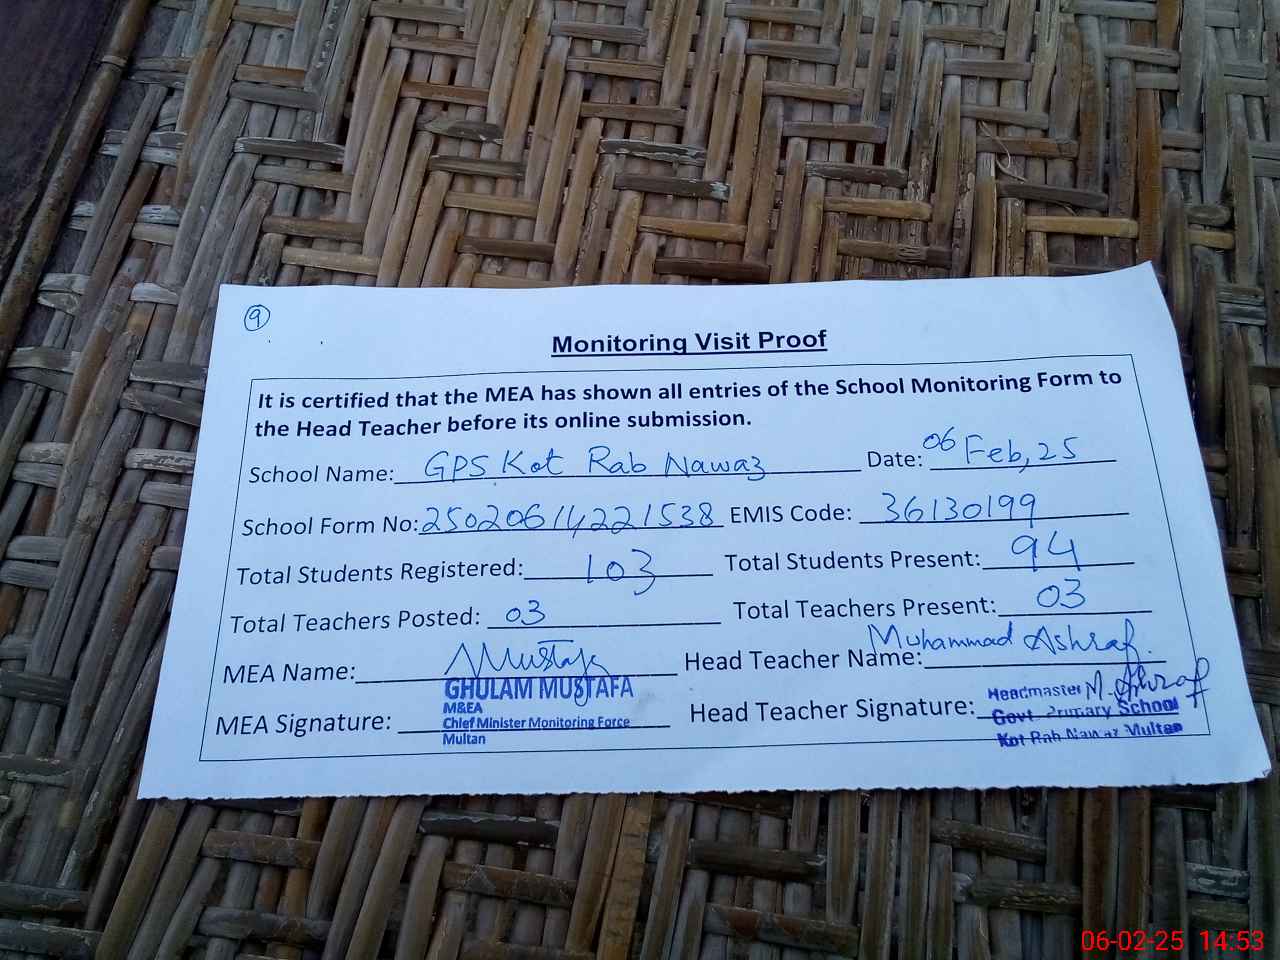 9
Monitoring Visit Proof
It is certified that the MEA has shown all entries of the School Monitoring Form to
the Head Teacher before its online submission.
School Name: GPS Kot Rab Nawaz Date: 06 Feb, 25
School Form No: 25020614221538 EMIS Code: 36130199
Total Students Registered: 103 Total Students Present: 94
Total Teachers Posted: 03 Total Teachers Present: 03
MEA Name: Mustafa Head Teacher Name: Muhammad Ashraf.
GHULAM MUSTAFA
M&EA
Chief Minister Monitoring Force
Multan
MEA Signature: Head Teacher Signature: M. Ashraf
Headmaster
Govt. Primary School
Kot Rab Nawaz Multan
06-02-25 14:53